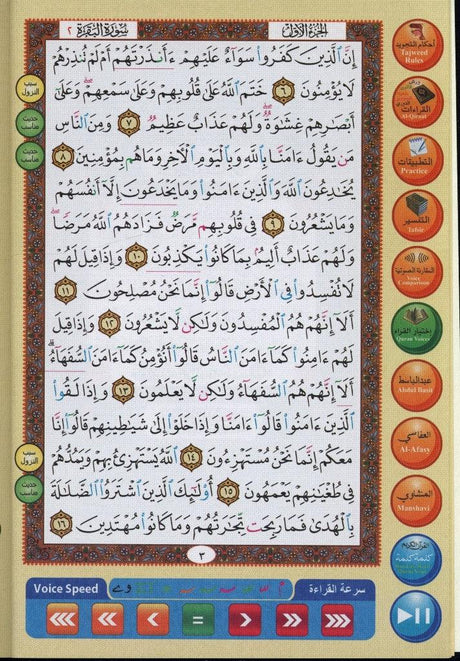 الجزء الأول
سورة البقرة ٢
إِنَّ ٱلَّذِينَ كَفَرُوا۟ سَوَآءٌ عَلَيْهِمْ ءَأَنذَرْتَهُمْ أَمْ لَمْ تُنذِرْهُمْ
لَا يُؤْمِنُونَ ٦ خَتَمَ ٱللَّهُ عَلَىٰ قُلُوبِهِمْ وَعَلَىٰ سَمْعِهِمْ ۖ وَعَلَىٰٓ
أَبْصَٰرِهِمْ غِشَٰوَةٌ ۖ وَلَهُمْ عَذَابٌ عَظِيمٌ ٧ وَمِنَ ٱلنَّاسِ
مَن يَقُولُ ءَامَنَّا بِٱللَّهِ وَبِٱلْيَوْمِ ٱلْءَاخِرِ وَمَا هُم بِمُؤْمِنِينَ ٨
يُخَٰدِعُونَ ٱللَّهَ وَٱلَّذِينَ ءَامَنُوا۟ وَمَا يَخْدَعُونَ إِلَّآ أَنفُسَهُمْ
وَمَا يَشْعُرُونَ ٩ فِى قُلُوبِهِم مَّرَضٌ فَزَادَهُمُ ٱللَّهُ مَرَضًا ۖ
وَلَهُمْ عَذَابٌ أَلِيمٌۢ بِمَا كَانُوا۟ يَكْذِبُونَ ١٠ وَإِذَا قِيلَ لَهُمْ
لَا تُفْسِدُوا۟ فِى ٱلْأَرْضِ قَالُوٓا۟ إِنَّمَا نَحْنُ مُصْلِحُونَ ١١
أَلَآ إِنَّهُمْ هُمُ ٱلْمُفْسِدُونَ وَلَٰكِن لَّا يَشْعُرُونَ ١٢ وَإِذَا قِيلَ
لَهُمْ ءَامِنُوا۟ كَمَآ ءَامَنَ ٱلنَّاسُ قَالُوٓا۟ أَنُؤْمِنُ كَمَآ ءَامَنَ ٱلسُّفَهَآءُ ۗ
أَلَآ إِنَّهُمْ هُمُ ٱلسُّفَهَآءُ وَلَٰكِن لَّا يَعْلَمُونَ ١٣ وَإِذَا لَقُوا۟
ٱلَّذِينَ ءَامَنُوا۟ قَالُوٓا۟ ءَامَنَّا وَإِذَا خَلَوْا۟ إِلَىٰ شَيَٰطِينِهِمْ قَالُوٓا۟ إِنَّا
مَعَكُمْ إِنَّمَا نَحْنُ مُسْتَهْزِءُونَ ١٤ ٱللَّهُ يَسْتَهْزِئُ بِهِمْ وَيَمُدُّهُمْ
فِى طُغْيَٰنِهِمْ يَعْمَهُونَ ١٥ أُو۟لَٰٓئِكَ ٱلَّذِينَ ٱشْتَرَوُا۟ ٱلضَّلَٰلَةَ
بِٱلْهُدَىٰ فَمَا رَبِحَت تِّجَٰرَتُهُمْ وَمَا كَانُوا۟ مُهْتَدِينَ ١٦
٣
سبب النزول
حديث مناسب
حديث مناسب
سبب النزول
حديث مناسب
أحكام التجويد
Tajweed
Rules
القراءات
Al-Qiraat
التطبيقات
Practice
التفسير
Tafsir
المقارنة الصوتية
Voice
Comparison
اختيار القراء
Quran Voices
عبدالباسط
Abdul Basit
العفاسي
Al-Afasy
المنشاوي
Manshavi
القرآن الكريم
كلمة كلمة
Voice Speed
سرعة القراءة